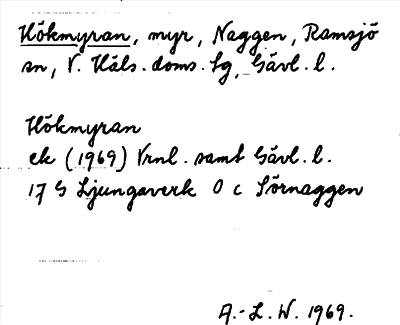 Hökmyran, myr, Naggen, Ramsjö
sn, V. Häls. doms. Sg, Gävl. l.
Hökmyran
ek (1969) Vrnl. samt Gävl. l.
17 G Ljungaverk 0 c Sörnaggen
A.-L. W. 1969.